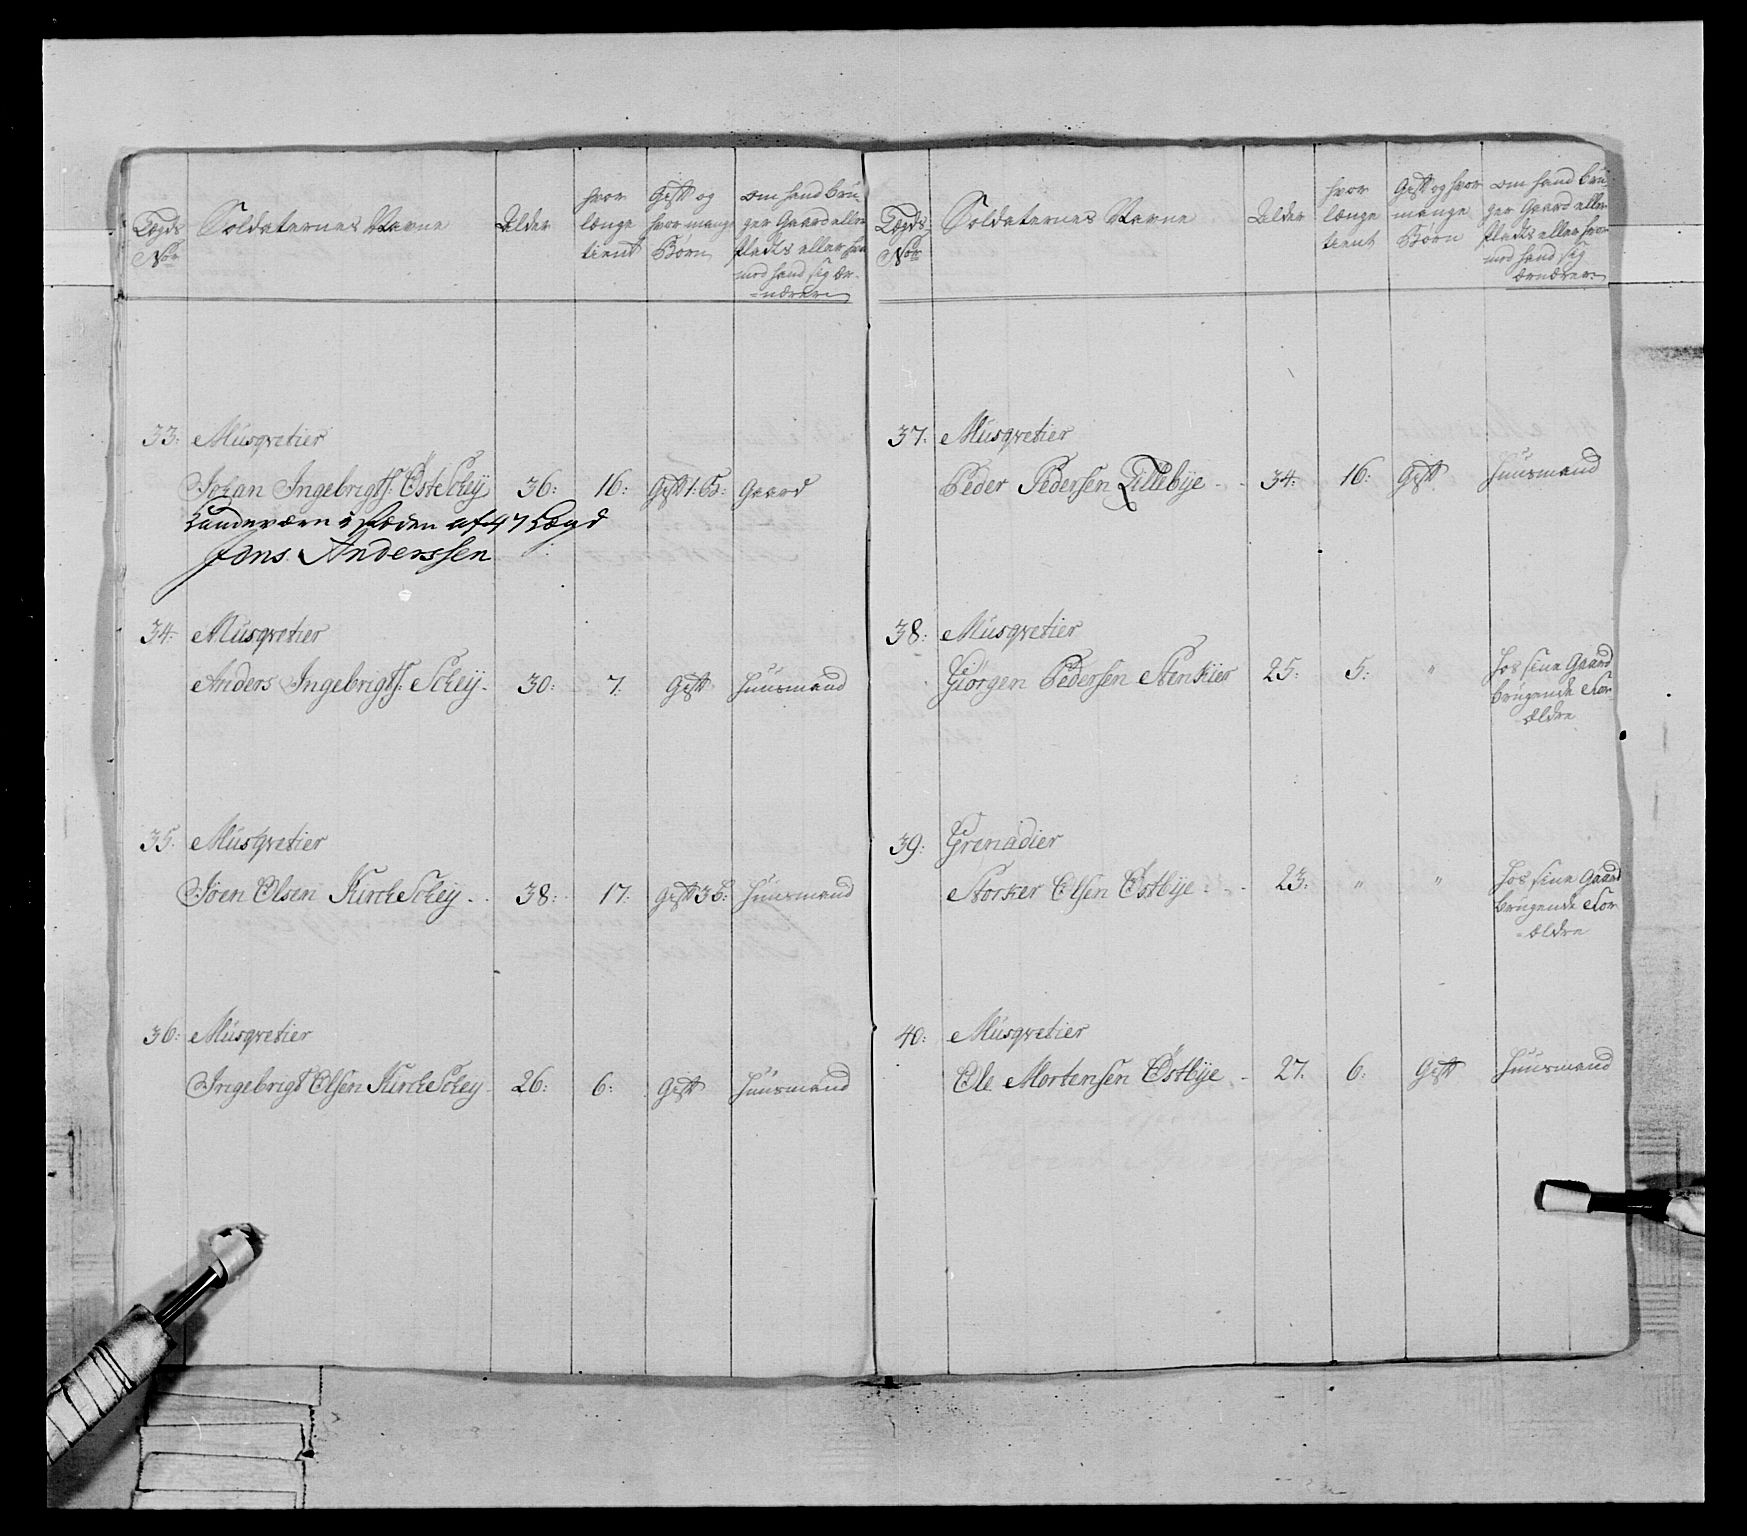 Lægds Nor
Soldaternes Navne
Alder
hvor længe tient
Gift og hvor mange Born
om hand bru-
ger Gaard eller
Plads eller hvor
med hand sig er-
-nærer
33: Musqvetier
Johan Ingebrigts: ÖsteSchey 36: 16: Gift 1: B: Gaard
Landeværn i stæden af 47 Lægd
Jons Anderssen
34: Musqvetier
Anders Ingebrigts: Schey. 30: 7. Gift Huusmand
35: Musqvetier
Joen Olsen KirckeSchey. 38: 17: Gift 3 B: Huusmand
36: Musqvetier
Ingebrigt Olsen KirckeSchey 26: 6: Gift Huusmand
Lægds Nor
Soldaternes Navne
Alder
hvor længe tient
Gift og hvor mange Born
om hand bru-
ger Gaard eller
Plads eller hvor
med hand sig
ernærer
37. Musqvetier
Peder Pedersen Lillebye 34: 16: Gift Huusmand
38: Musqvetier
Giörgen Pedersen Stenkier 25: 5: " Hos sine Gaard
brugende For-
ældre
39: Grenadier
Storker Olsen Östbye 23: " " Hos sine Gaard
brugende For-
-ældre
40: Musqvetier
Ole Mortensen Östbye 27. 6: Gift Huusmand